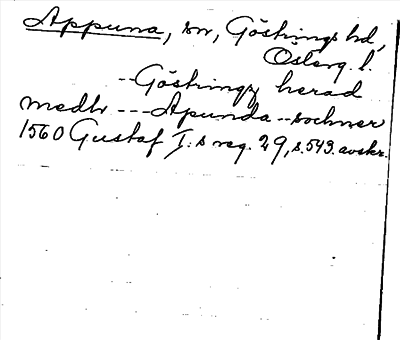 Appuna, sn, Göstrings hd,
Österg. l.
--Göstringz herad
medh --- Apunda -- sochner
1560 Gustaf I:s reg. 29, s. 543. avskr.